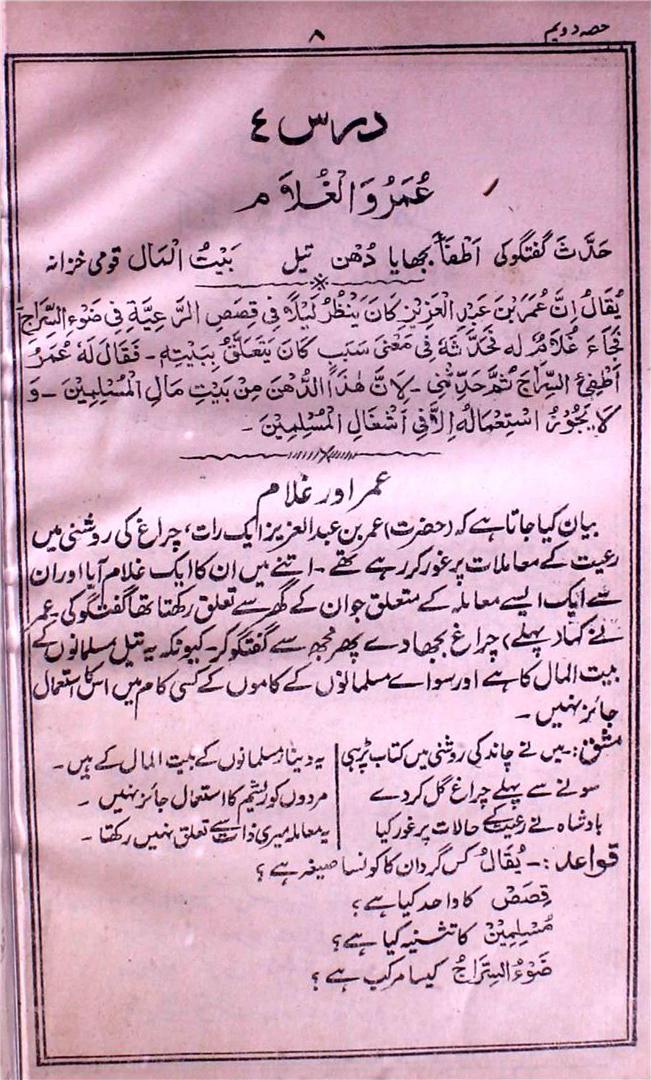 حصہ دویم
۸
درس ٤
عُمَرُ وَالْغُلَامُ
حَدَّثَ گفتگو کی اَطْفَأَ بجھایا دُهن تیل بَيْتُ الْمَال قومی خزانہ
يُقَالُ اِنَّ عُمَرَ بْنَ عَبْدِ الْعَزِيْزِ كَانَ يَنْظُرُ لَيْلًا فِي قِصَصِ الرَّعِيَّةِ فِي ضَوْءِ السِّرَاجِ
فَجَاءَ غُلَامٌ لَهُ فَحَدَّثَهُ فِي مَعْنَى سَبَبٍ كَانَ يَتَعَلَّقُ بِبَيْتِهِ ۔ فَقَالَ لَهُ عُمَرُ
اَطْفِئِ السِّرَاجَ ثُمَّ حَدِّثْنِي ۔ لِاَنَّ هٰذَا الدُّهْنَ مِنْ بَيْتِ مَالِ الْمُسْلِمِيْنَ ۔ وَ
لَا يَجُوْزُ اسْتِعْمَالُهُ اِلَّا فِي اَشْغَالِ الْمُسْلِمِيْنَ ۔
عمر اور غلام
بیان کیا جاتا ہے کہ (حضرت) عمر بن عبد العزیز ایک رات، چراغ کی روشنی میں
رعیت کے معاملات پر غور کر رہے تھے ۔ اتنے میں ان کا ایک غلام آیا اور ان
سے ایک ایسے معاملہ کے متعلق جو ان کے گھر سے تعلق رکھتا تھا گفتگو کی ۔ عمر
نے کہا (پہلے) چراغ بجھا دے پھر مجھ سے گفتگو کر ۔ کیونکہ یہ تیل مسلمانوں کے
بیت المال کا ہے اور سوائے مسلمانوں کے کاموں کے کسی کام میں اس کا استعمال
جائز نہیں ۔
مشق :۔ میں نے چاند کی روشنی میں کتاب پڑہی
سونے سے پہلے چراغ گل کر دے
بادشاہ نے رعیت کے حالات پر غور کیا
یہ دینار مسلمانوں کے بیت المال کے ہیں ۔
مردوں کو ریشم کا استعمال جائز نہیں ۔
یہ معاملہ میری ذات سے تعلق نہیں رکھتا ۔
قواعد :۔ يُقَالُ کس گردان کا کونسا صیغہ ہے ؟
قِصَصْ کا واحد کیا ہے ؟
مُسْلِمِيْنْ کا تثنیہ کیا ہے ؟
ضَوْءُ السِّرَاجُ کیسا مرکب ہے ؟